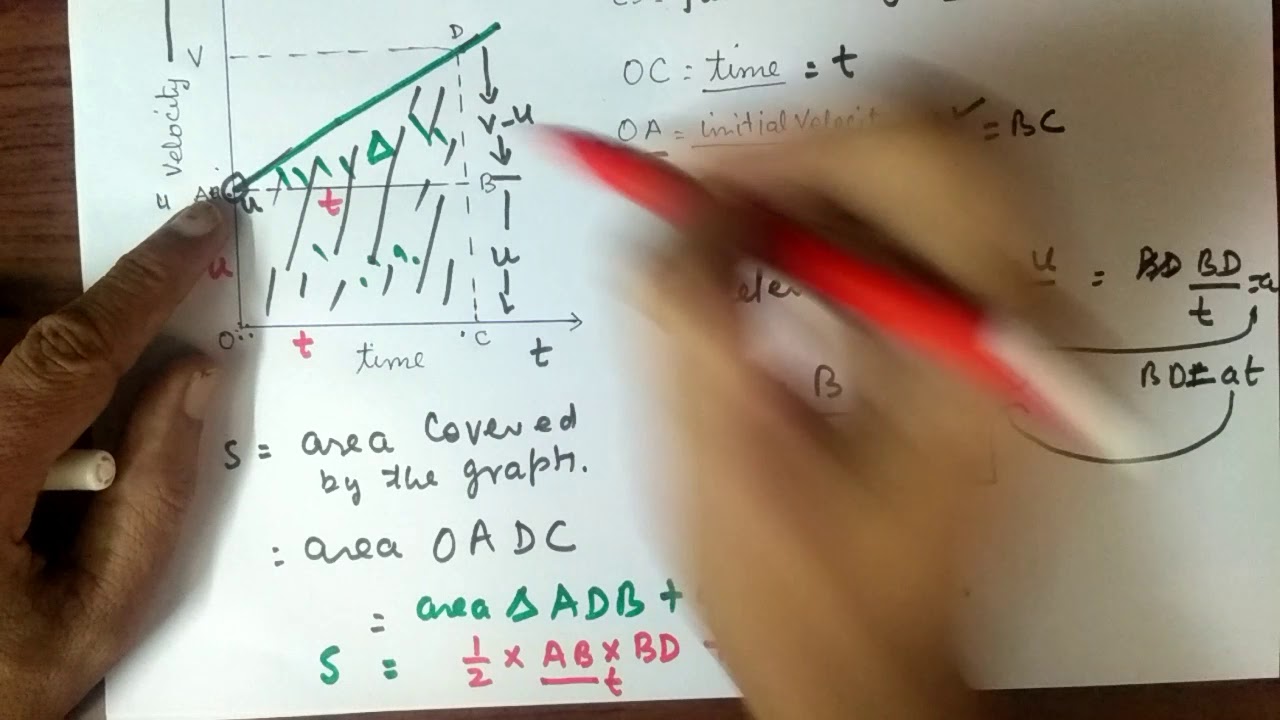 V
D
Velocity
V-u
A
u
t
B
u
u
u
O
t
time
C
t
OC = time = t
OA = initial velocit = BC
u = BD BD/t = a
BD = at
B
S = area covered
by the graph.
= area OADC
= area Δ ADB +
S = 1/2 × AB × BD
t